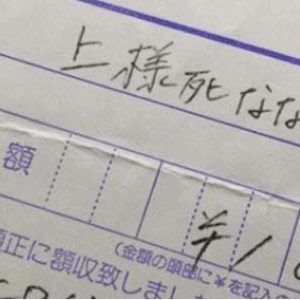 上様死なな
額
¥1
(金額の頭部に¥を記入
正に額収致しまし